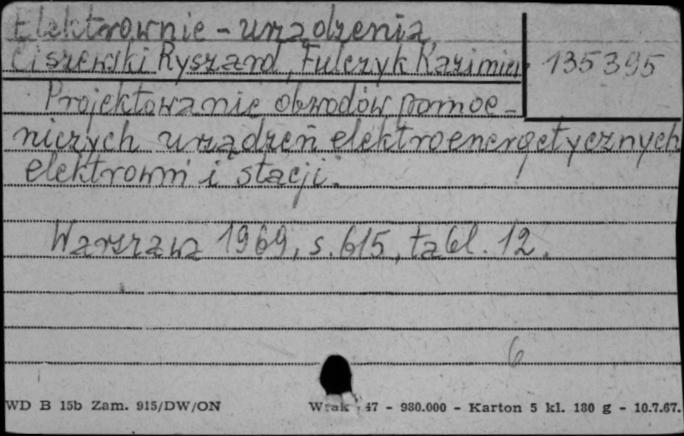 Elektrownie - urządzenia
Ciszewski Ryszard, Fulczyk Kazimierz
135395
Projektowanie obwodów pomoc-
niczych urządzeń elektroenergetycznych
elektrowni i stacji.
Warszawa 1969, s. 615, tabl. 12.
6
WD B 15b Zam. 915/DW/ON
47 - 980.000 - Karton 5 kl. 180 g - 10.7.67.